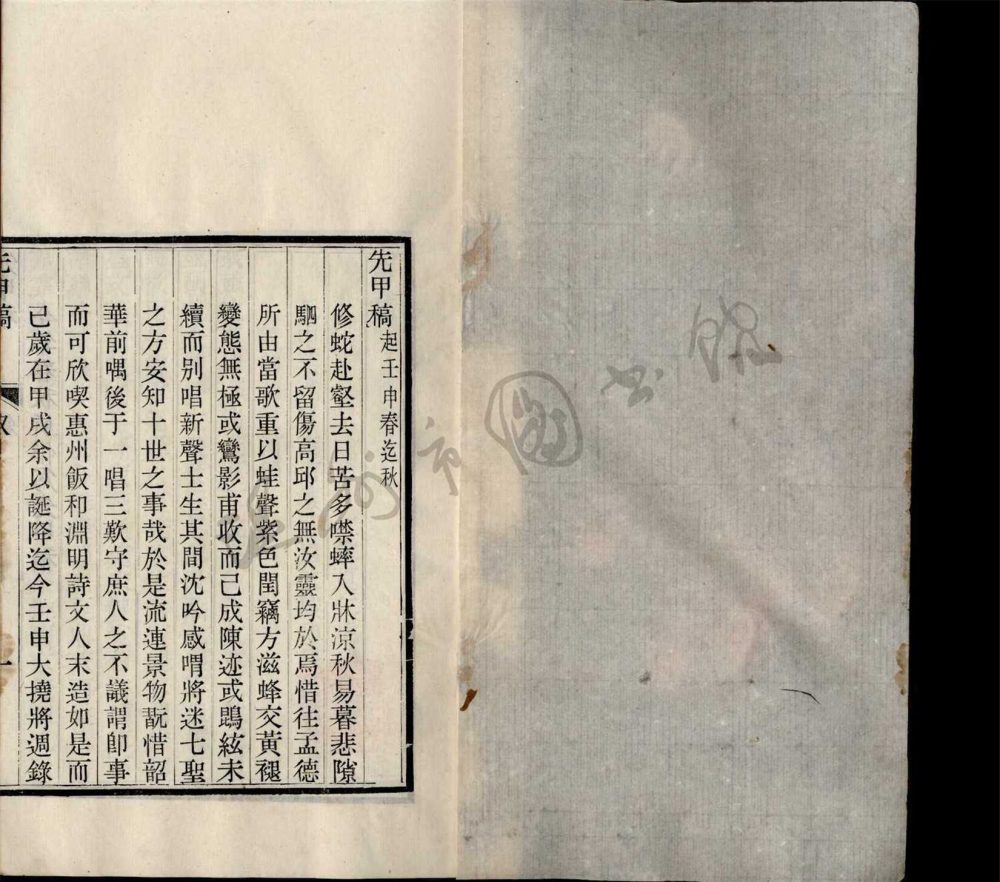 先甲稿 起壬申春迄秋
修蛇赴壑去日苦多噤蟀入牀涼秋易暮悲隙
駟之不留傷高邱之無汝靈均於焉惜往孟德
所由當歌重以蛙聲紫色閏竊方滋蜂交黃褪
變態無極或鸞影甫收而已成陳迹或鵾絃未
續而别唱新聲士生其間沈吟感喟將迷七聖
之方安知十世之事哉於是流連景物翫惜韶
華前喁後于一唱三歎守庶人之不議謂卽事
而可欣喫惠州飯和淵明詩文人末造如是而
已歲在甲戌余以誕降迄今壬申大撓將週錄
先甲稿
一
市圖書館